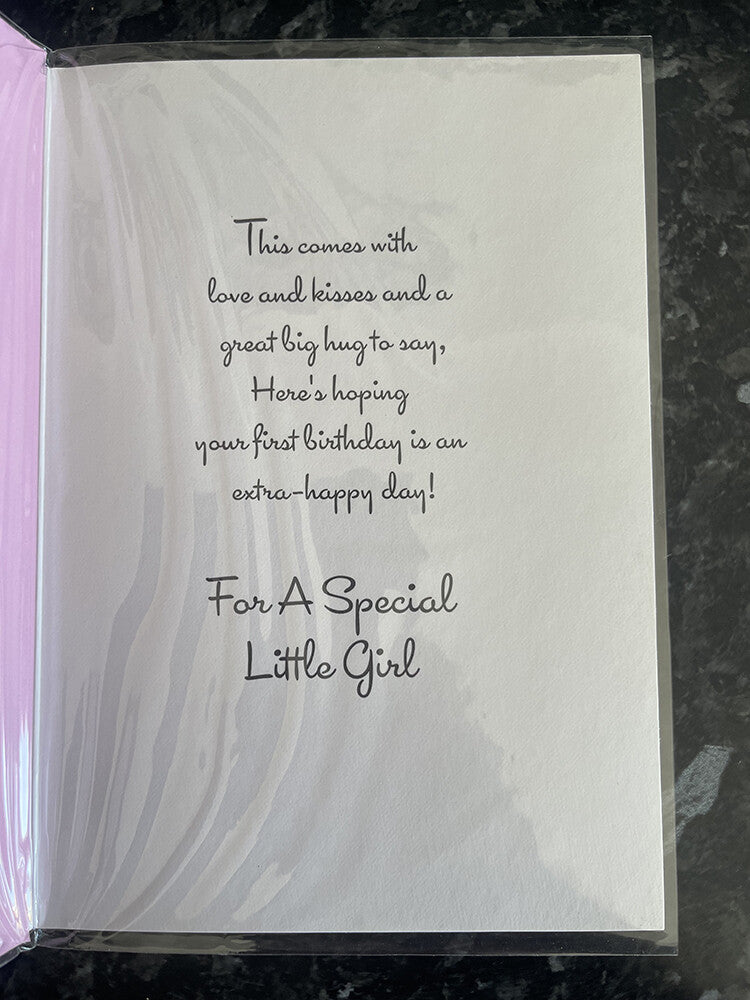 This comes with
love and kisses and a
great big hug to say,
Here's hoping
your first birthday is an
extra-happy day!
For A Special
Little Girl